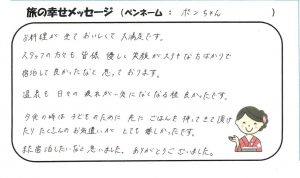 旅の幸せメッセージ（ペンネーム：ポンちゃん）
お料理が全ておいしくて大満足です。
スタッフの方々も皆様優しく笑顔がステキな方ばかりで
宿泊して良かったなと思っております。
温泉も日々の疲れが一気になくなる程良かったです。
夕食の時は子どものために先にごはんを持ってきて頂け
たりたくさんのお気遣いがとても嬉しかったです。
また宿泊したいなと思いました。ありがとうございました。